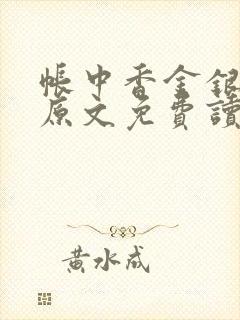 帳中香金銀
原文免費讀
黃水成